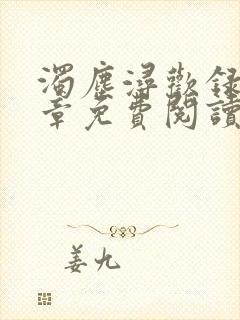 濁塵潯歡錄
章免費閱讀
姜九